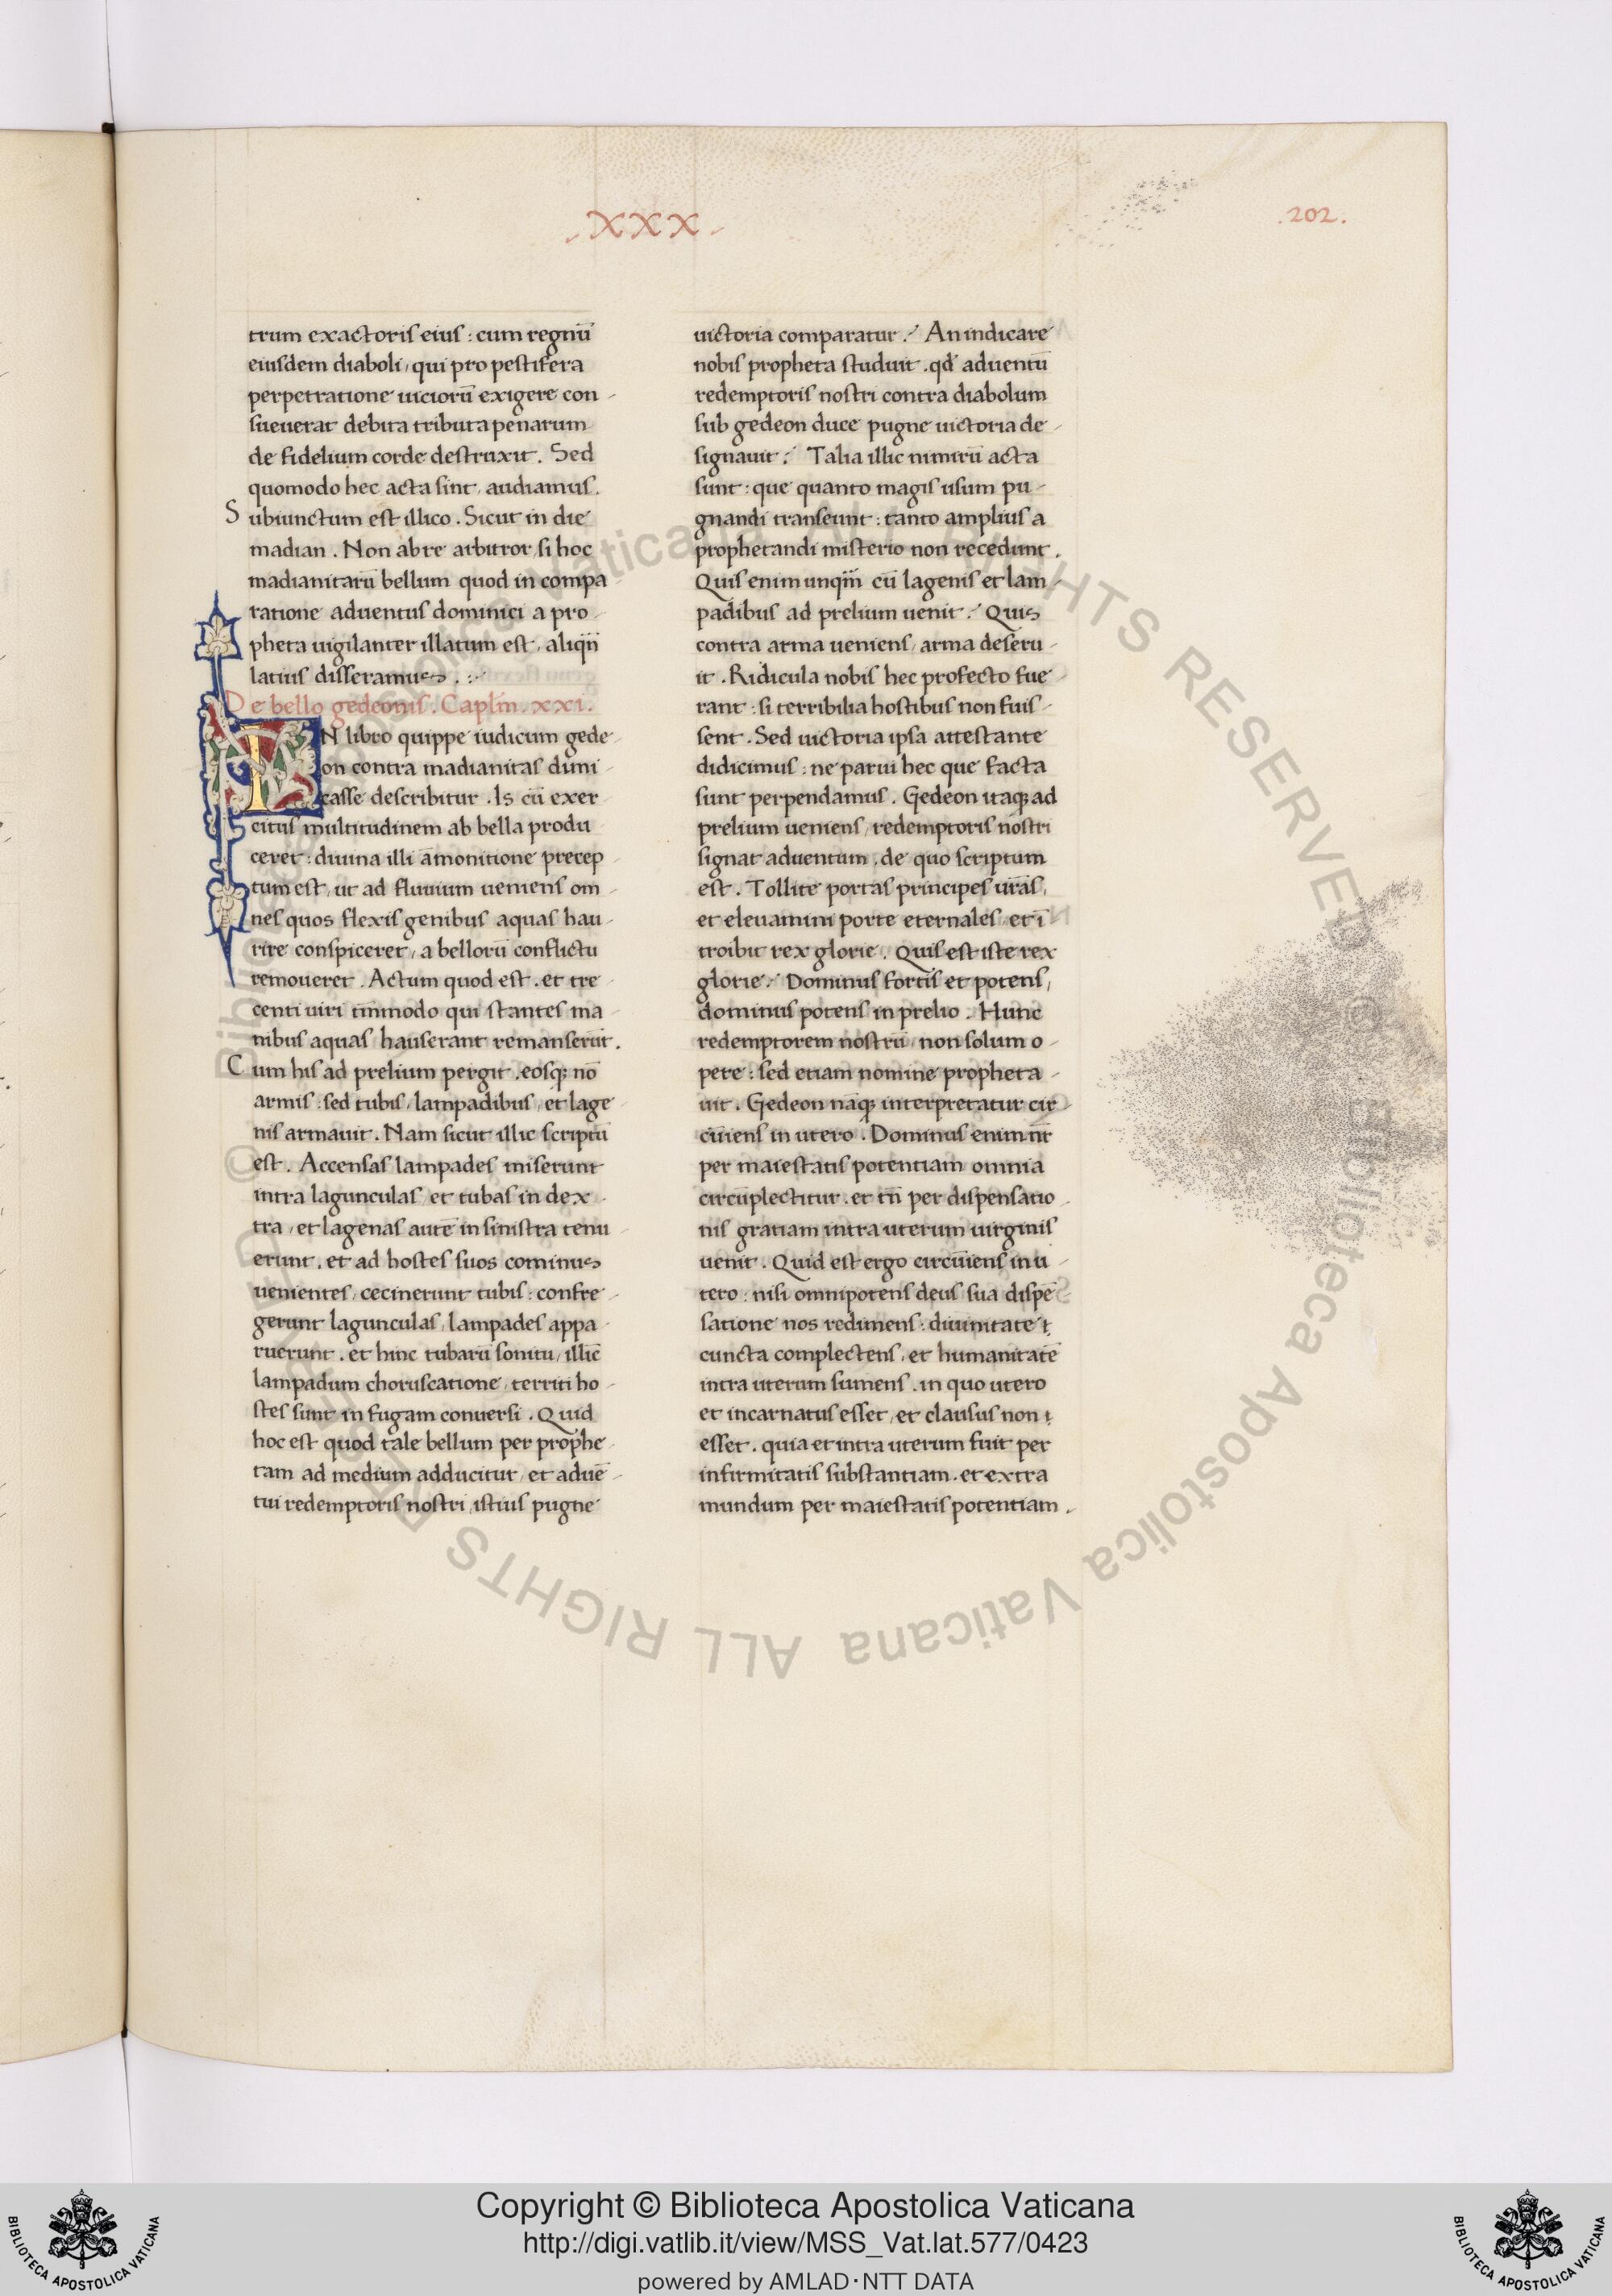 XXX
.202.
trum exactoris eius : cum regnū
eiusdem diaboli, qui pro pestifera
perpetratione uiciorū exigere con-
sueuerat debita tributa penarum
de fidelium corde destruxit. Sed
quomodo hec acta sint, audiamus.
Subiunctum est illico. Sicut in die
madian. Non ab re arbitror, si hoc
madianitarū bellum quod in compa-
ratione aduentus dominici a pro-
pheta uigilanter illatum est, aliqn̄
latius disseramus.
De bello gedeonis. Caplm̄. xxi.
IN libro quippe iudicum gede-
on contra madianitas dimi-
casse describitur. Is cū exer-
citus multitudinem ab bella produ-
ceret : diuina illi āmonitione precep-
tum est, ut ad fluuium ueniens om-
nes quos flexis genibus aquas hau-
rire conspiceret, a bellorū conflictu
remoueret. Actum quod est. et tre-
centi uiri tm̄modo qui stantes ma-
nibus aquas hauserant remanserūt.
Cum his ad prelium pergit. eosq; nō
armis : sed tubis, lampadibus, et lage-
nis armauit. Nam sicut illic scriptū
est. Accensas lampades miserunt
intra lagunculas, et tubas in dex-
tra, et lagenas autē in sinistra tenu-
erunt. et ad hostes suos cominus
uenientes, cecinerunt tubis : confre-
gerunt lagunculas, lampades appa-
ruerunt. et hinc tubarū sonitu, illic
lampadum choruscatione, territi ho-
stes sunt in fugam conuersi. Quid
hoc est quod tale bellum per prophe-
tam ad medium adducitur, et aduē-
tui redemptoris nostri, istius pugne
uictoria comparatur? An indicare
nobis propheta studuit. qd̄ aduentū
redemptoris nostri contra diabolum
sub gedeon duce pugne uictoria de-
signauit? Talia illic nimirū acta
sunt : que quanto magis usum pu-
gnandi transeunt : tanto amplius a
prophetandi misterio non recedunt.
Quis enim unqm̄ cū lagenis et lam-
padibus ad prelium uenit? Quis
contra arma ueniens, arma deseru-
it. Ridicula nobis hec profecto fue-
rant : si terribilia hostibus non fuis-
sent. Sed uictoria ipsa attestante
didicimus : ne parui hec que facta
sunt perpendamus. Gedeon itaq; ad
prelium ueniens, redemptoris nostri
signat aduentum, de quo scriptum
est. Tollite portas principes ur̄as,
et eleuamini porte eternales, et ī-
troibit rex glorie. Quis est iste rex
glorie? Dominus fortis et potens,
dominus potens in prelio. Hunc
redemptorem nostrū, non solum o-
pere : sed etiam nomine propheta-
uit. Gedeon nāq; interpretatur cir-
cūiens in utero. Dominus enim nr̄
per maiestatis potentiam omnia
circūplectitur. et tn̄ per dispensatio-
nis gratiam intra uterum uirginis
uenit. Quid est ergo circūiens in u-
tero : nisi omnipotens deus sua dispē-
satione nos redimens : diuinitate
cuncta complectens, et humanitatē
intra uterum sumens. in quo utero
et incarnatus esset, et clausus non
esset. quia et intra uterum fuit per
infirmitatis substantiam. et extra
mundum per maiestatis potentiam.
© Biblioteca Apostolica Vaticana ALL RIGHTS RESERVED
© Biblioteca Apostolica Vaticana ALL RIGHTS RESERVED
Copyright © Biblioteca Apostolica Vaticana
http://digi.vatlib.it/view/MSS_Vat.lat.577/0423
powered by AMLAD·NTT DATA
BIBLIOTECA APOSTOLICA VATICANA
BIBLIOTECA APOSTOLICA VATICANA